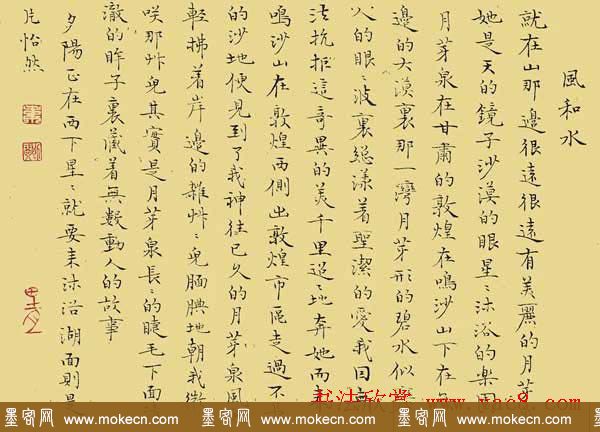 風和水
就在山那邊很遠很遠有美麗的月芽
她是天的鏡子沙漠的眼星〻沐浴的樂園
月芽泉在甘肅的敦煌在鳴沙山下在
邊的大漠裏那一灣月芽形的碧水似
人的眼〻波裏總漾着聖潔的愛我因
法抗拒這奇異的美千里迢〻地奔她而
鳴沙山在敦煌西側出敦煌市區走過不
的沙地便見到了我神往已久的月芽泉風
輕拂着岸邊的雜艸〻兒腼腆地朝我微
咲那艸兒其實是月芽泉長〻的睫毛下面
澈的眸子裏藏着無數動人的故事
夕陽正在西下星〻就要来沐浴湖面則是
片怡然
书法欣赏
墨客网 www.mokecn.com 墨客网 www.mokecn.com 墨客网 www.mokecn.com